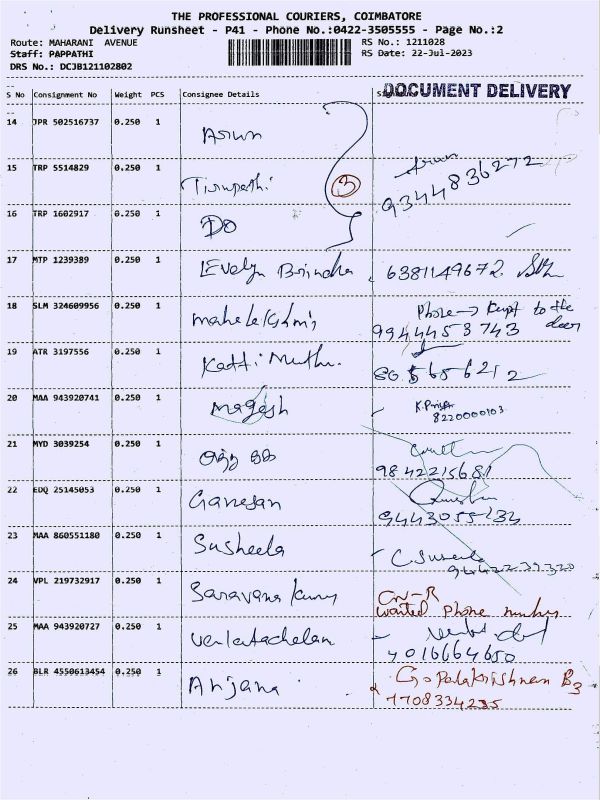 THE PROFESSIONAL COURIERS, COIMBATORE
Delivery Runsheet - P41 - Phone No.:0422-3505555 - Page No.:2
Route: MAHARANI AVENUE
Staff: PAPPATHI
DRS No.: DCJB121102802
RS No.: 1211028
RS Date: 22-Jul-2023
DOCUMENT DELIVERY
S No Consignment No Weight PCS Consignee Details
14 JPR 502516737 0.250 1 Arun
15 TRP 5514829 0.250 1 Tirupathi 3 Arun
9344836272
16 TRP 1602917 0.250 1 DO
17 MTP 1239389 0.250 1 Evelyn Brindha 6381149672
18 SLM 324609956 0.250 1 mahelakshmi Phone → kept to the door
9944453743
19 ATR 3197556 0.250 1 Katti Muthu.
20 MAA 943920741 0.250 1 Magesh K.Priya
8220000103
21 MYD 3039254 0.250 1
9842215681
22 EDQ 25145053 0.250 1 Ganesan
9443055234
23 MAA 860551180 0.250 1 Susheela
24 VPL 219732917 0.250 1 Saravana CN-R
wanted Phone number
25 MAA 943920727 0.250 1 Venkatachalam
26 BLR 4550613454 0.250 1 Anjana Gopalakrishnan B3
7708334235